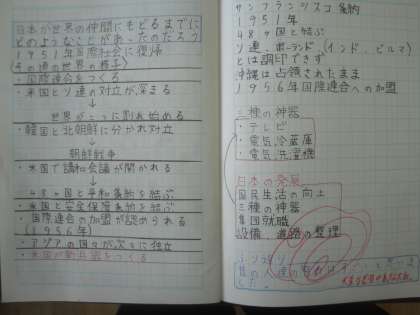 日本が世界の仲間にもどるまでに
どのようなことがあったのだろう
1951年国際社会に復帰
(その頃の世界の様子)
・国際連合をつくる
・米国とソ連の対立が深まる
↓
世界が二つに割れ始める
・韓国と北朝鮮に分かれ対立
↓
朝鮮戦争
・米国で講和会議が開かれる
↓
48ヶ国と平和条約を結ぶ
・米国と安全保障条約を結ぶ
・国際連合の加盟が認められる
(1956年)
・アジアの国々が次々に独立
サンフランシスコ条約
1951年
48ヶ国と結ぶ
ソ連、ポーランド(インド、ビルマ)
とは調印できず
沖縄は占領されたまま
1956年国際連合への加盟
三種の神器
・テレビ
・電気冷蔵庫
・電気洗濯機
日本の発展
国民生活の向上
三種の神器
集団就職
設備、道路の整理